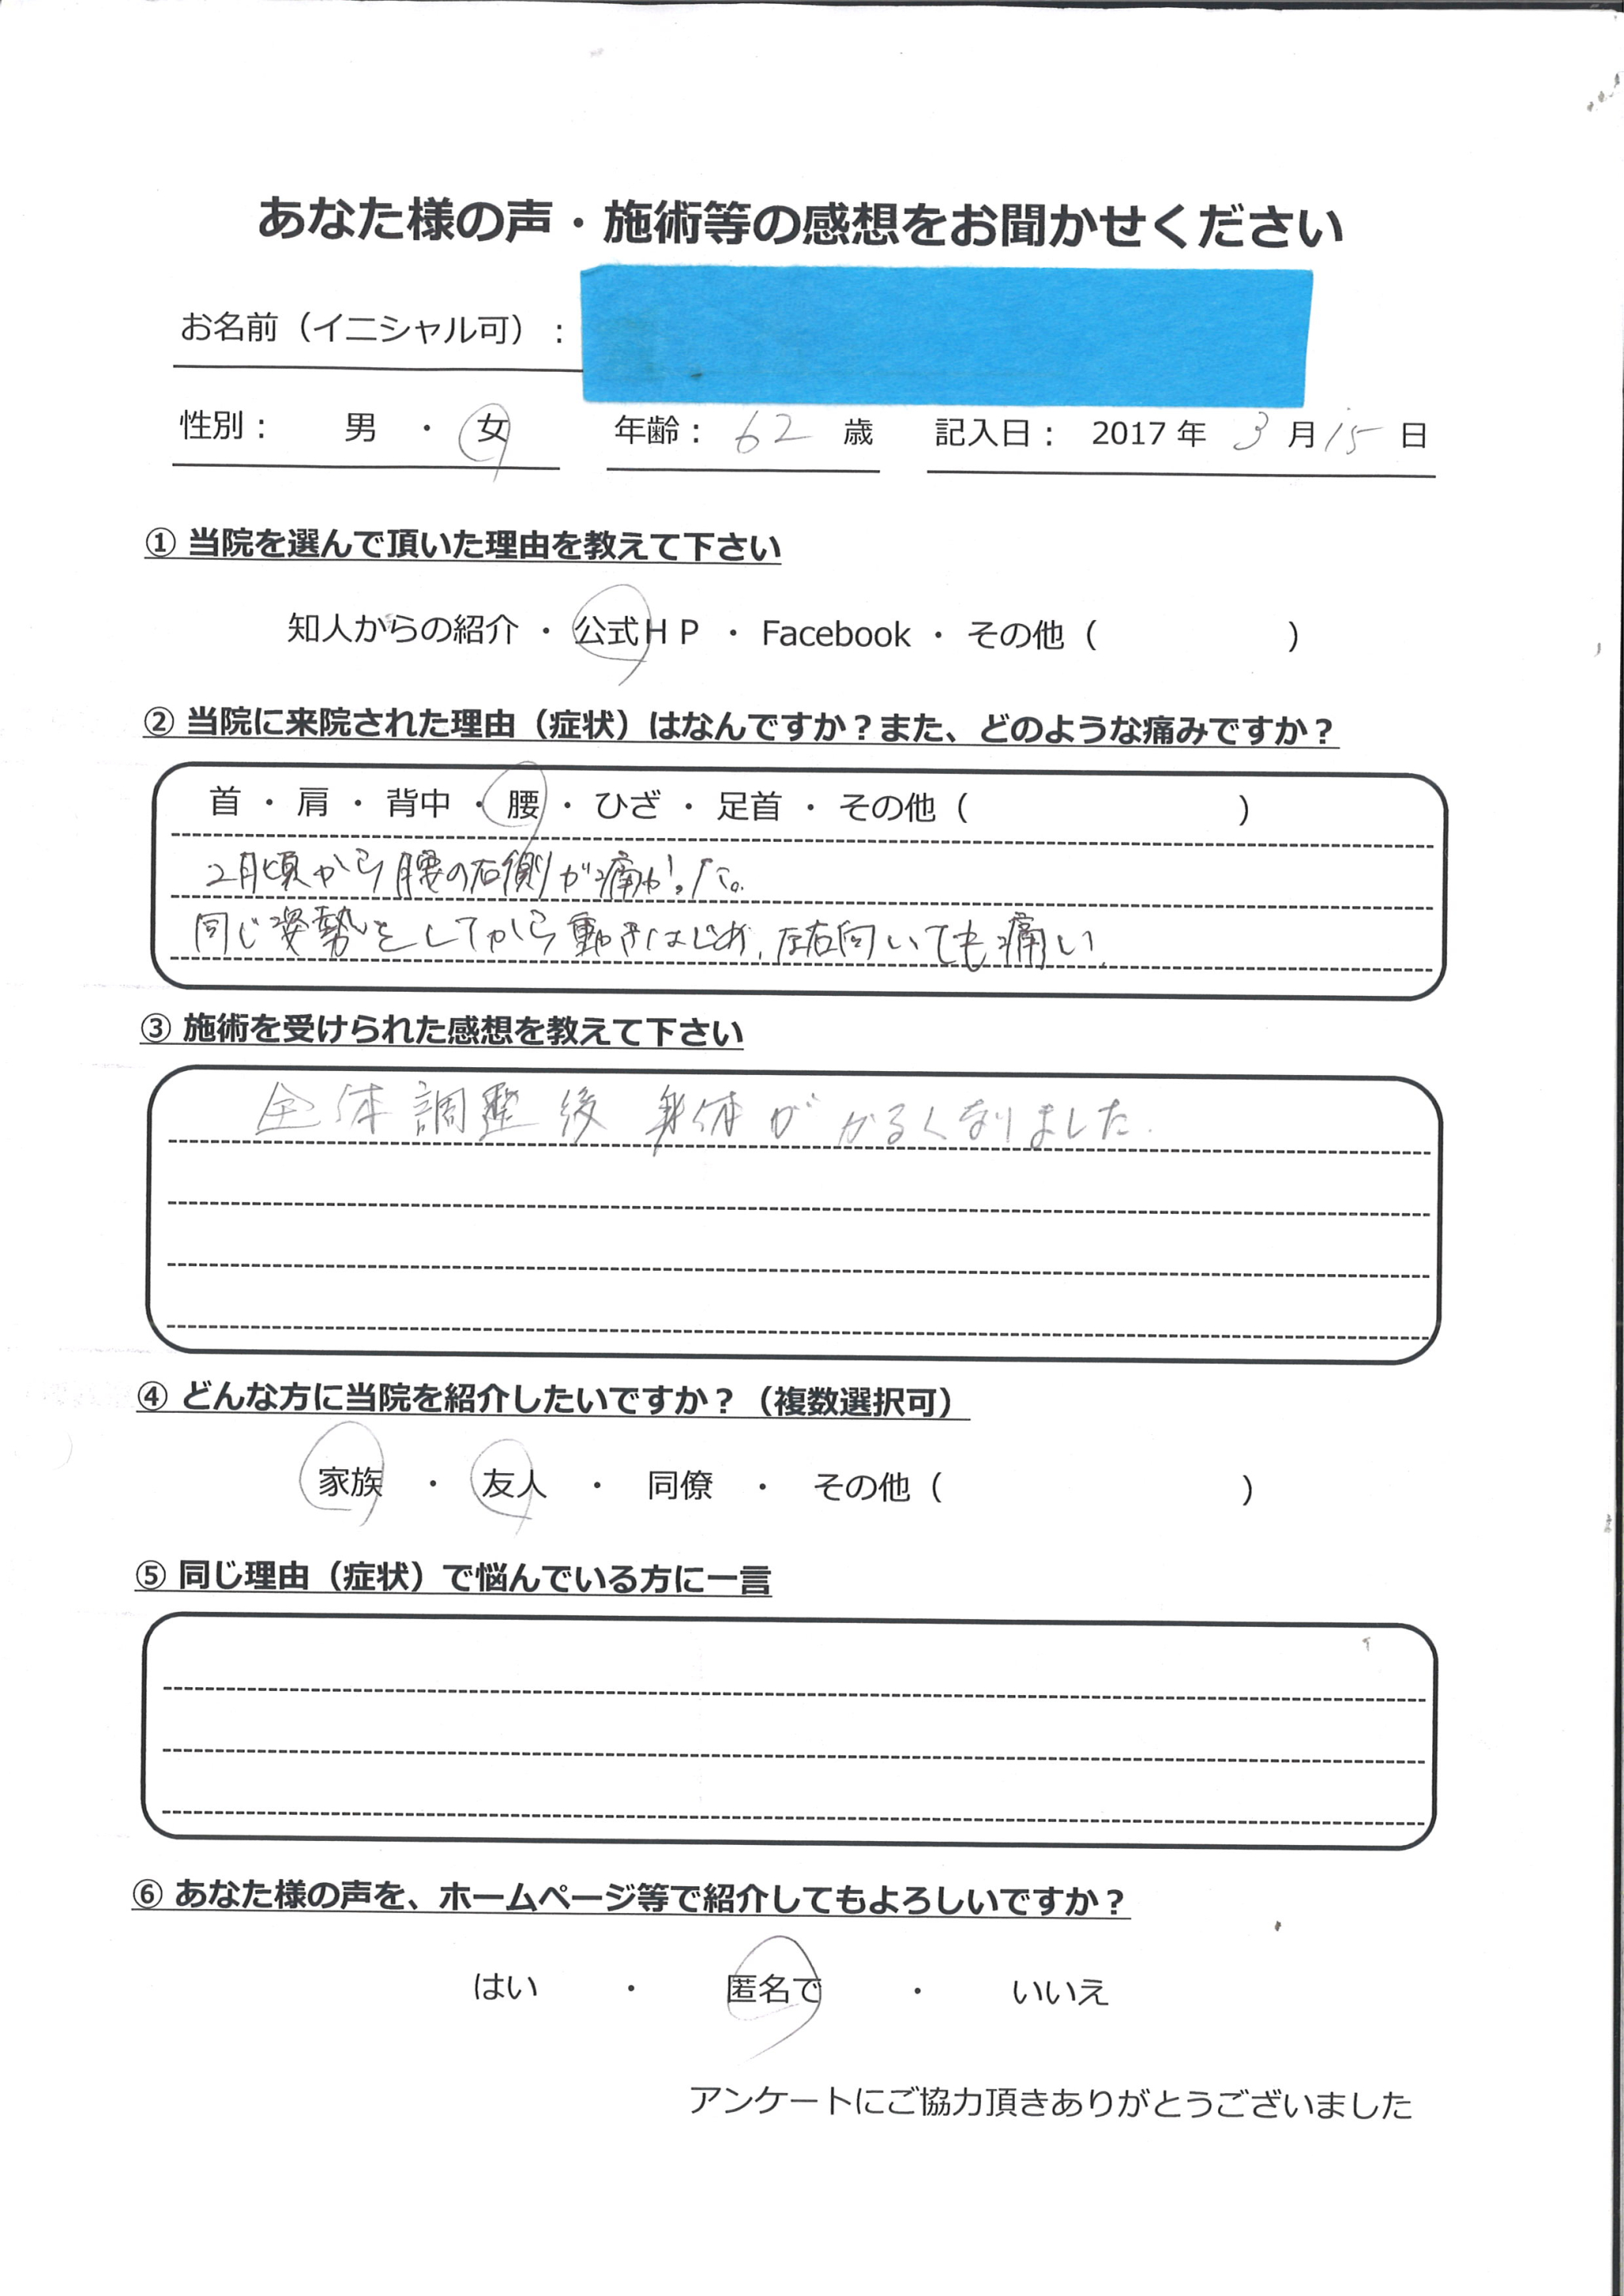 あなた様の声・施術等の感想をお聞かせください
お名前（イニシャル可）：
性別： 男 ・ 女 年齢： 62 歳 記入日： 2017 年 3 月 15 日
① 当院を選んで頂いた理由を教えて下さい
知人からの紹介 ・ 公式ＨＰ ・ Facebook ・ その他（ ）
② 当院に来院された理由（症状）はなんですか？また、どのような痛みですか？
首 ・ 肩 ・ 背中 ・ 腰 ・ ひざ ・ 足首 ・ その他（ ）
2月頃から腰の右側が痛かった。
同じ姿勢をしてから動きはじめ、左右向いても痛い
③ 施術を受けられた感想を教えて下さい
全体調整後 身体が かるくなりました.
④ どんな方に当院を紹介したいですか？（複数選択可）
家族 ・ 友人 ・ 同僚 ・ その他（ ）
⑤ 同じ理由（症状）で悩んでいる方に一言
⑥ あなた様の声を、ホームページ等で紹介してもよろしいですか？
はい ・ 匿名で ・ いいえ
アンケートにご協力頂きありがとうございました